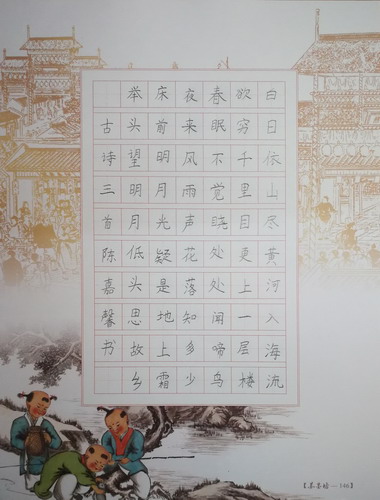 白日依山尽黄河入海流
欲穷千里目更上一层楼
春眠不觉晓处处闻啼鸟
夜来风雨声花落知多少
床前明月光疑是地上霜
举头望明月低头思故乡
古诗三首陈嘉馨书
146